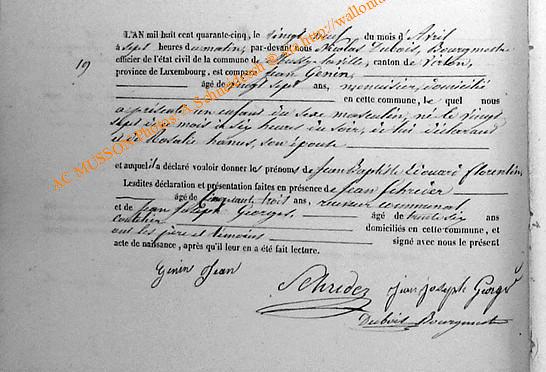 L'AN mil huit cent quarante-cinq, le vingt neuf du mois d'Avril
à sept heures du matin, par-devant nous Nicolas Dubois, Bourgmestre
officier de l'état civil de la commune de Mussy-la-ville, canton de Virton,
19
province de Luxembourg, est comparu Jean Genin,
âgé de vingt sept ans, menuisier, domicilié
en cette commune, le quel nous
a présenté un enfant du sexe masculin, né le vingt
sept de ce mois à six heures du soir, de lui déclarant
et de Rosalie hanus, son épouse
et auquel il a déclaré vouloir donner les prénoms de Jean Baptiste Edouard florentin,
Lesdites déclaration et présentation faites en présence de Jean schreder
âgé de cinquante trois ans, receveur communal
et de Jean Joseph Georges, âgé de trente six ans
domiciliés en cette commune, et
ont les père et témoins signé avec nous le présent
acte de naissance, après qu'il leur en a été fait lecture.
Genin Jean
Schreder Jean Joseph Georges
Dubois Bourgmest
AC MUSSON Photos: A. Schneiderin @ http://wallonia